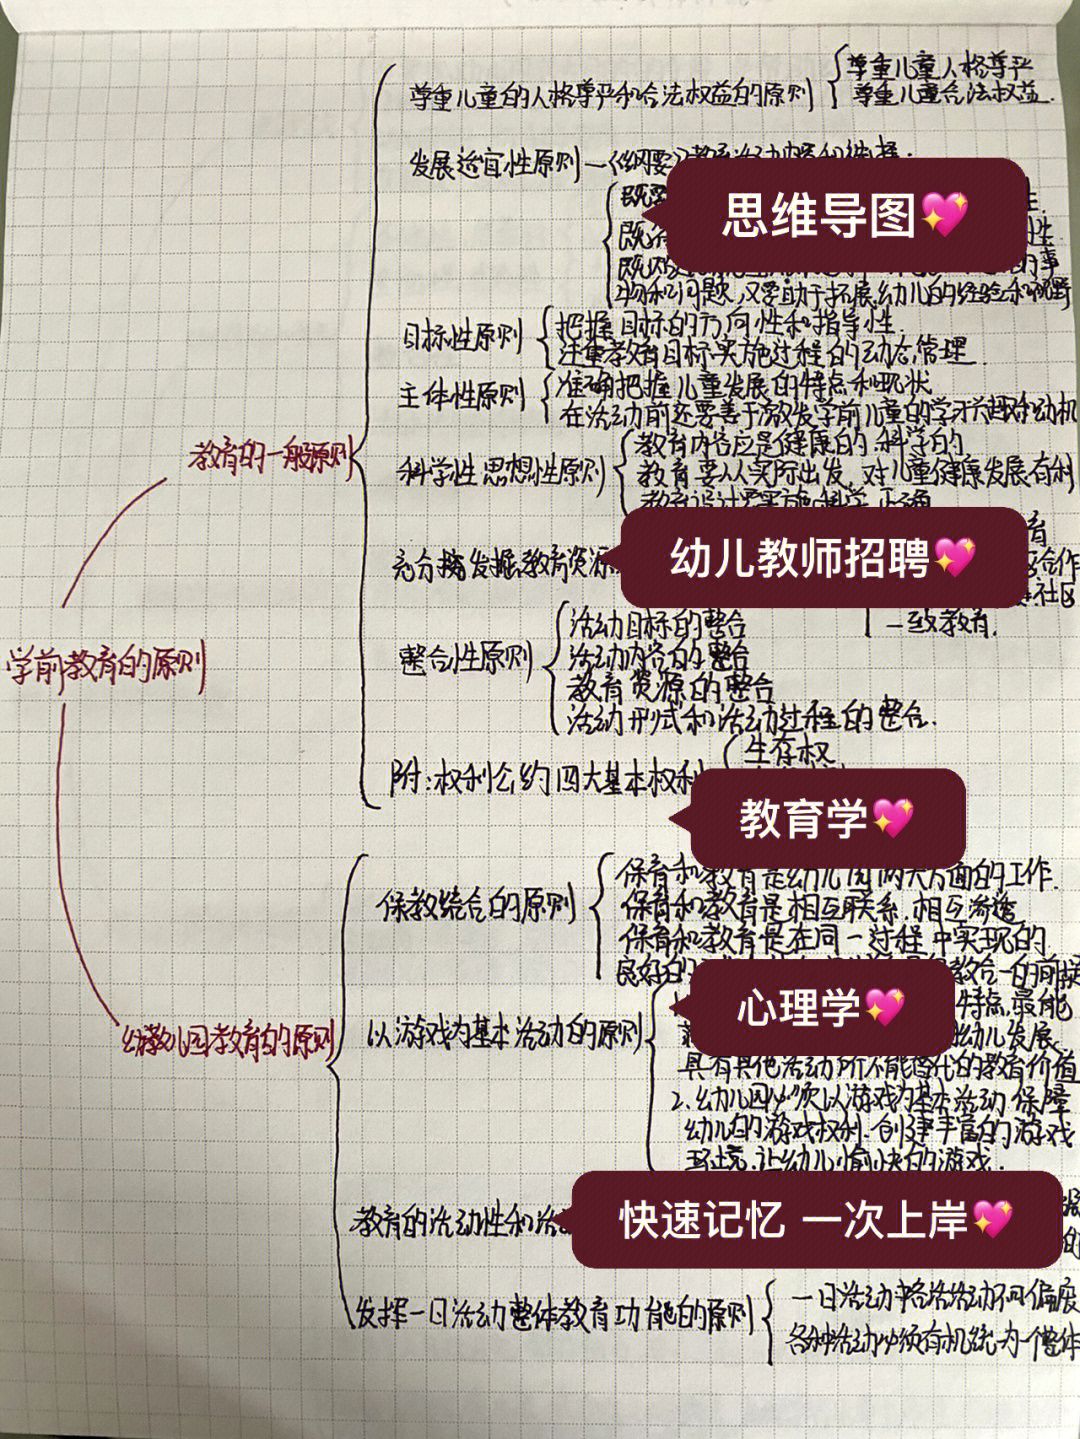 尊重儿童的人格尊严和合法权益的原则
尊重儿童人格尊严
尊重儿童合法权益.
发展适宜性原则
思维导图💖
物和问题,又要助于拓展幼儿的经验和视野
目标性原则
把握目标的方向性和指导性.
注重教育目标实施过程的动态管理.
主体性原则
准确把握儿童发展的特点和现状
在活动前还要善于激发学前儿童的学习兴趣和动机
教育的一般原则
科学性思想性原则
教育内容应是健康的.科学的
教育要从实际出发,对儿童健康发展有利
充分发掘教育资源
幼儿教师招聘💖
合作
社区
一致教育.
整合性原则
活动目标的整合
活动内容的整合
教育资源的整合
活动形式和活动过程的整合.
学前教育的原则
附:权利公约四大基本权利
生存权
教育学💖
保教结合的原则
保育和教育是幼儿园两大方面的工作.
保育和教育是相互联系.相互渗透
保育和教育是在同一过程中实现的.
良好的
教合一的前提
心理学💖
特点,最能
幼儿园教育的原则
以游戏为基本活动的原则
幼儿发展.
具有其他活动所不能替代的教育价值
2.幼儿园必须以游戏为基本活动 保障
幼儿的游戏权利.创建丰富的游戏
环境,让幼儿愉快的游戏.
教育的活动性和活
快速记忆 一次上岸💖
发挥一日活动整体教育功能的原则
一日活动中各活动不可偏废
各种活动必须有机统为一个整体